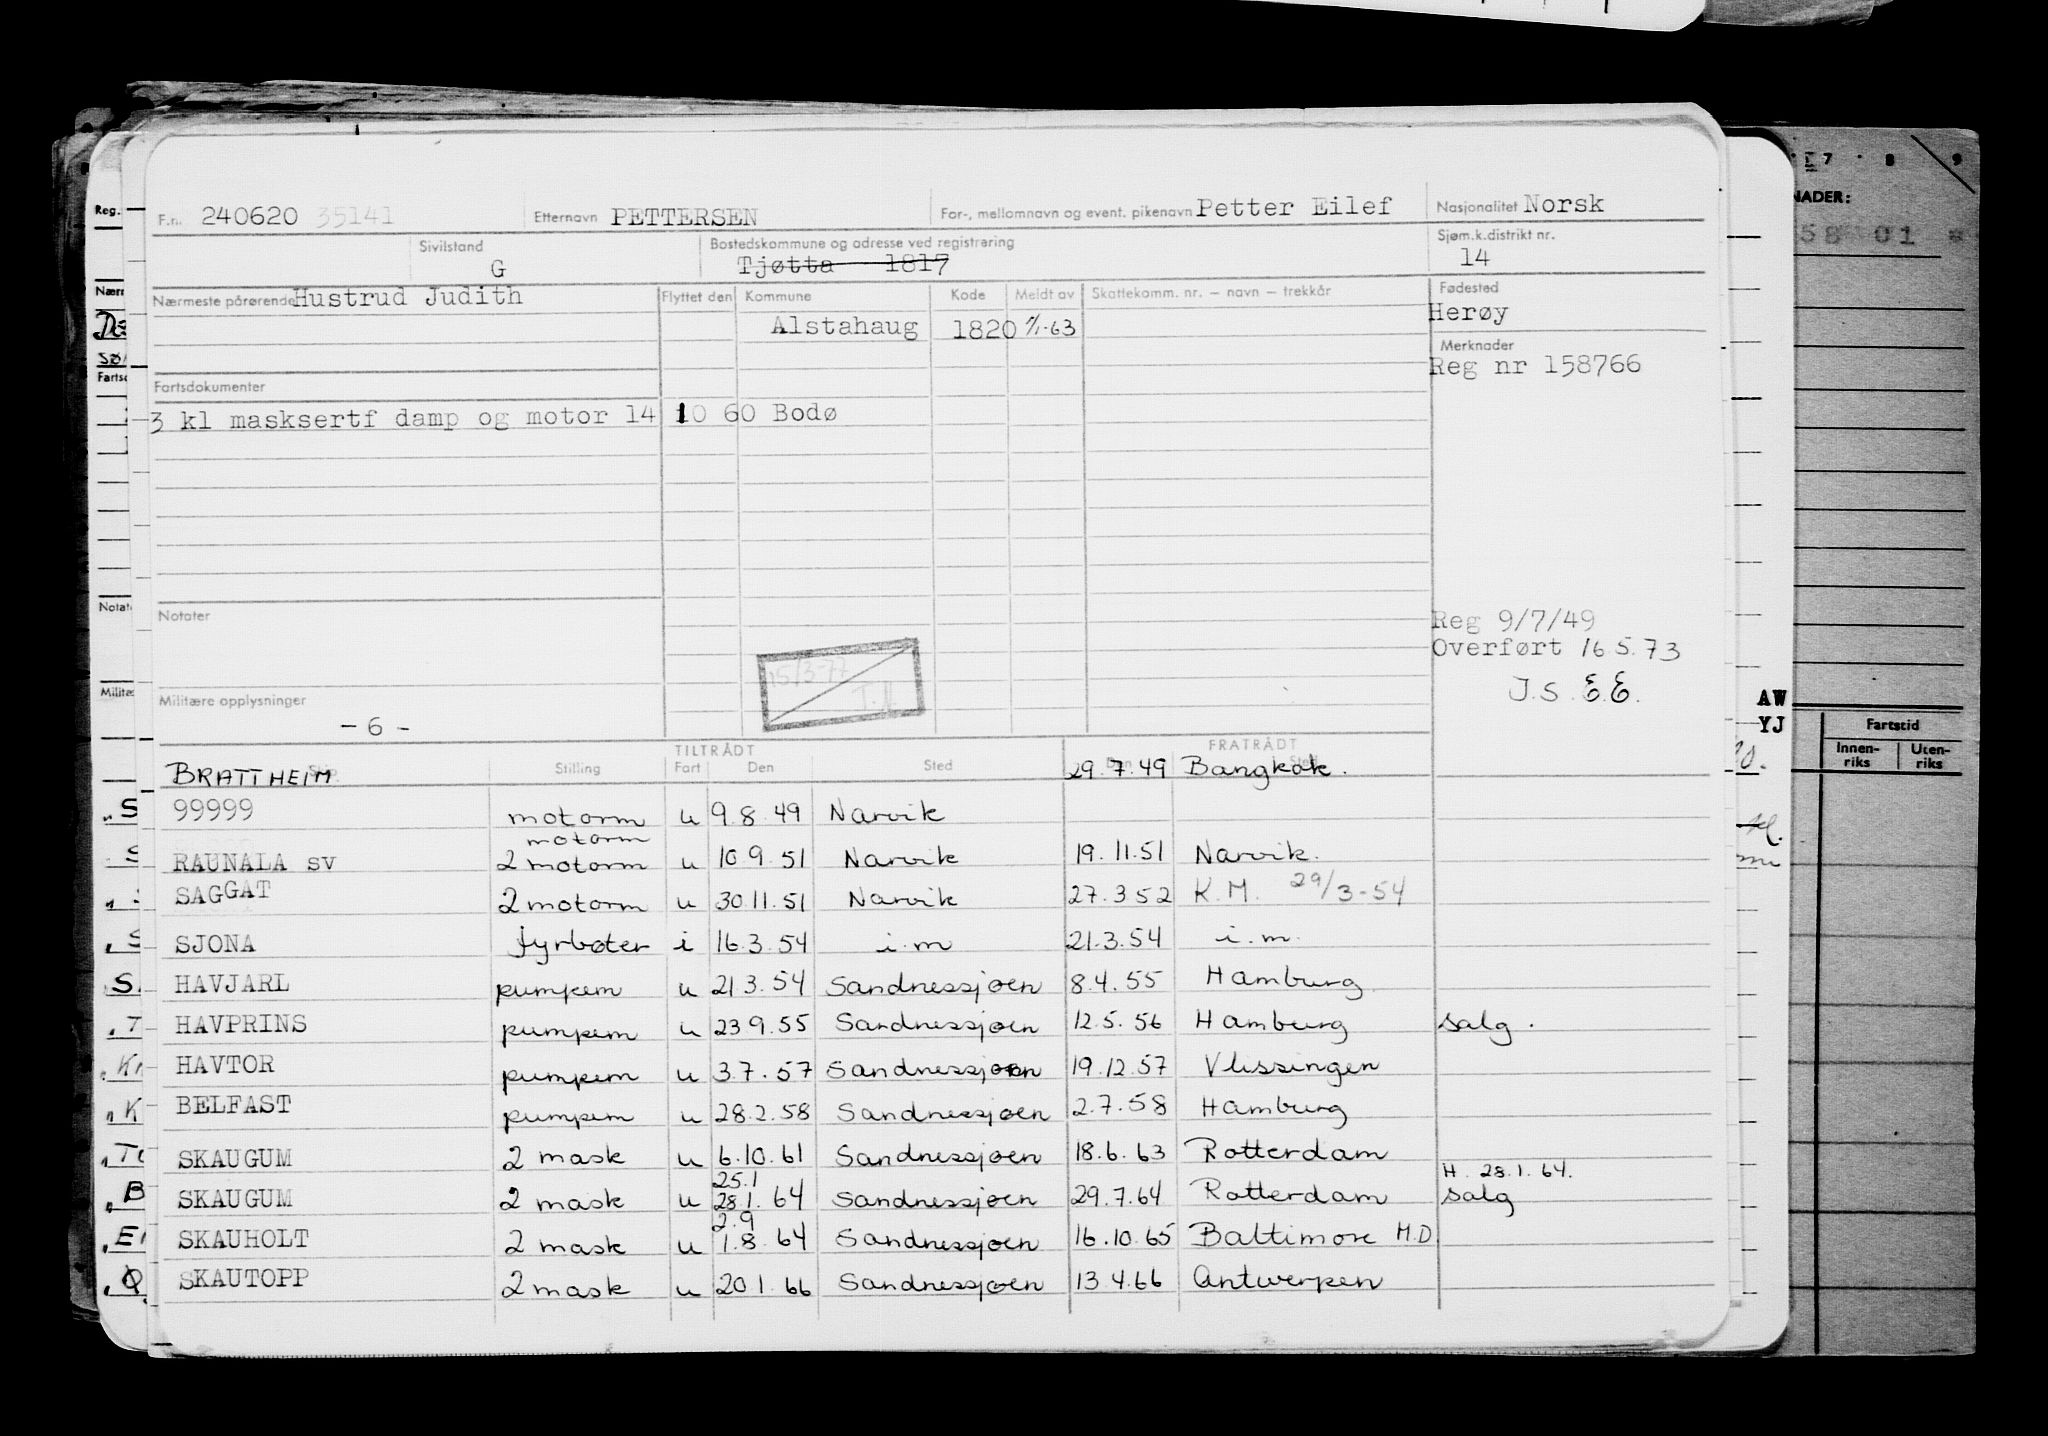 F.nr. 240620 35141 Etternavn PETTERSEN For-, mellomnavn og event. pikenavn Petter Eilef Nasjonalitet Norsk
Sivilstand G Bostedskommune og adresse ved registrering Tjøtta 1817 Sjøm.k.distrikt nr. 14
Nærmeste pårørende Hustrud Judith Flyttet den Kommune Kode Meldt av Skattekomm. nr. – navn – trekkår Fødested
Alstahaug 1820 1/1-63 Herøy
Merknader
Reg nr 158766
Fartsdokumenter
3 kl masksertf damp og motor 14 10 60 Bodø
Notater
Reg 9/7/49
Overført 16 5.73
J.S. E.E.
15/3-77
Militære opplysninger
- 6 -
TILTRÅDT FRATRÅDT
Skip Stilling Fart Den Sted Den Sted
BRATTHEIM 29.7.49 Bangkok.
99999 motorm u 9.8.49 Narvik
motorm
RAUNALA sv 2 motorm u 10 9.51 Narvik 19.11.51 Narvik.
SAGGAT 2 motorm u 30.11.51 Narvik 27.3 52 K.M. 29/3-54
SJONA fyrbøter i 16.3.54 i.m 21.3.54 i.m.
HAVJARL pumpem u 21 3.54 Sandnessjøen 8.4.55 Hamburg
HAVPRINS pumpem u 23 9.55 Sandnessjøen 12.5.56 Hamburg salg.
HAVTOR pumpem u 3.7.57 Sandnessjøen 19.12.57 Vlissingen
BELFAST pumpem u 28.2.58 Sandnessjøen 2.7.58 Hamburg
SKAUGUM 2 mask u 6.10.61 Sandnessjøen 18.6.63 Rotterdam
25.1 H. 28.1.64.
SKAUGUM 2 mask u 28 1. 64 Sandnessjøen 29.7.64 Rotterdam salg
2.9
SKAUHOLT 2 mask u 1.8.64 Sandnessjøen 16.10.65 Baltimore M.D
SKAUTOPP 2 mask u 20 1.66 Sandnessjøen 13.4.66 Antwerpen
7 8 9
NADER:
58 01
AW
YJ
Fartstid
Innen-riks Uten-riks
Reg.
Notat